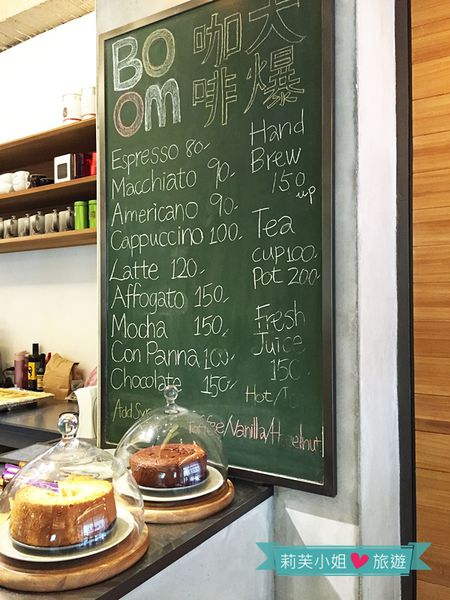 BO
OM
大爆
咖啡
Espresso 80-
Macchiato 90-
Americano 90-
Cappuccino 100-
Latte 120-
Affogato 150-
Mocha 150-
Con Panna 100-
Chocolate 150-
Hand
Brew
150 up
Tea
Cup 100
Pot 200
Fresh
Juice
150
Hot/
Add /Vanilla/
莉芙小姐❤旅遊